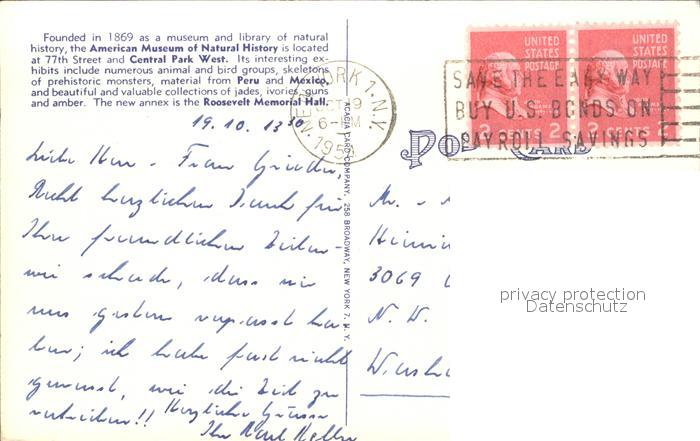 Founded in 1869 as a museum and library of natural
history, the American Museum of Natural History is located
at 77th Street and Central Park West. Its interesting ex-
hibits include numerous animal and bird groups, skeletons
of prehistoric monsters, material from Peru and Mexico,
and beautiful and valuable collections of jades, ivories, guns
and amber. The new annex is the Roosevelt Memorial Hall.
19. 10. 13 30
Liebe Herr - Frau
Recht herzlichen Dank für
Ihre freundlichen Zeilen -
wie schade, dass wir
uns gestern verpasst ha
ben; ich habe fast nicht
gewusst, wie die Zeit zu
vertreiben!! Herzliche Grüsse
Ihr Karl Keller
ACACIA CARD COMPANY, 258 BROADWAY, NEW YORK 7, N. Y.
NEW YORK 1, N.Y.
OCT 19
6- PM
195
POST CARD
UNITED
STATES
POSTAGE
2 CENTS 2
UNITED
STATES
POSTAGE
2 CENTS 2
SAVE THE EASY WAY
BUY U.S. BONDS ON
PAYROLL SAVINGS
Mr. -
3069
N. W.
privacy protection
Datenschutz